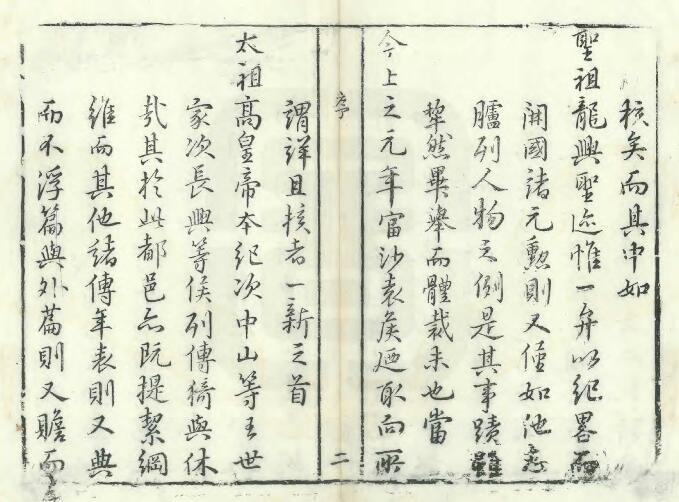 核矣而其中如
聖祖龍興聖迹惟一弁以紀畧而
開國諸元勲則又僅如他志
臚列人物之例是其事蹟雖
犂然畢舉而體裁未也當
今上之元年富沙袁矦廼取而所
序
二
謂詳且核者一新之首
太祖高皇帝本紀次中山等王世
家次長興等侯列傳猗與休
哉其於此都邑亦既提挈綱
維而其他諸傳年表則又典
而不浮篇與外篇則又贍而